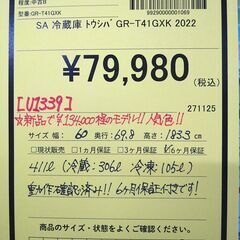 程度:中古B
型番:GR-T41GXK
99290000001069
SA 冷蔵庫 トウシバ GR-T41GXK 2022
¥79,980
(税込)
[U1339]
271125
☆新品で¥134,000程のモデル!!人気色!!
サイズ 幅: 60 奥行: 69.8 高さ: 183.3 cm
□現状販売 □1ヵ月保証 □3ヵ月保証 ☑6ヶ月保証
411ℓ (冷蔵:306ℓ 冷凍:105ℓ)
動作確認済み!!6ヶ月保証付きです!